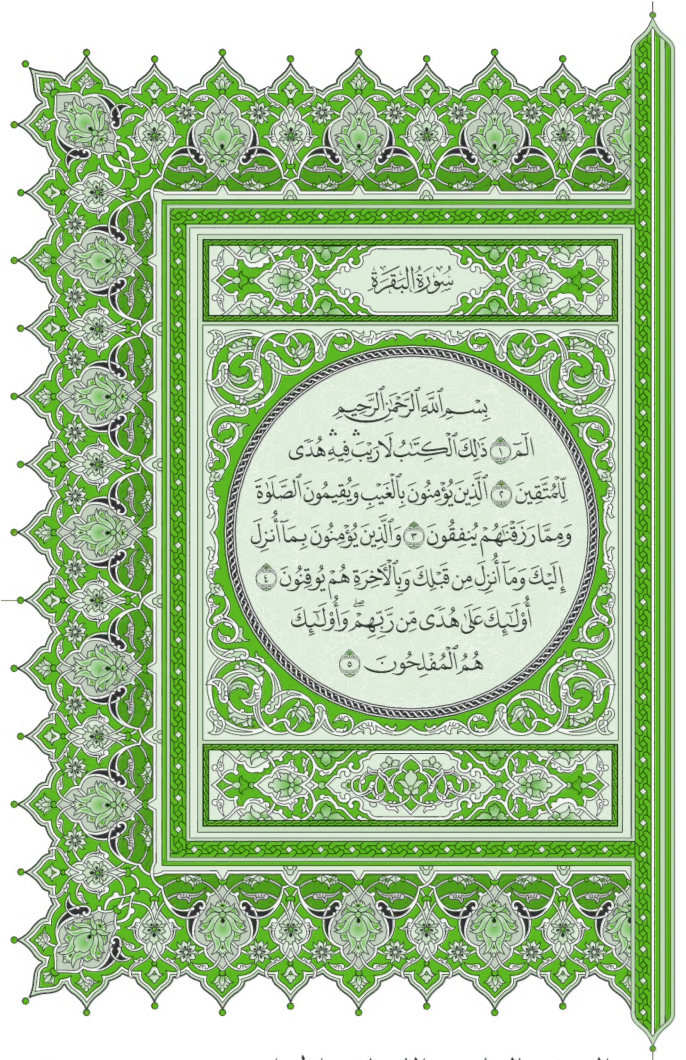 سُورَةُ البَقَرَةِ
بِسْمِ ٱللَّهِ ٱلرَّحْمَٰنِ ٱلرَّحِيمِ
الٓمٓ ۝١ ذَٰلِكَ ٱلْكِتَٰبُ لَا رَيْبَۛ فِيهِۛ هُدًى
لِّلْمُتَّقِينَ ۝٢ ٱلَّذِينَ يُؤْمِنُونَ بِٱلْغَيْبِ وَيُقِيمُونَ ٱلصَّلَوٰةَ
وَمِمَّا رَزَقْنَٰهُمْ يُنفِقُونَ ۝٣ وَٱلَّذِينَ يُؤْمِنُونَ بِمَآ أُنزِلَ
إِلَيْكَ وَمَآ أُنزِلَ مِن قَبْلِكَ وَبِٱلْأٓخِرَةِ هُمْ يُوقِنُونَ ۝٤
أُو۟لَٰٓئِكَ عَلَىٰ هُدًى مِّن رَّبِّهِمْۖ وَأُو۟لَٰٓئِكَ
هُمُ ٱلْمُفْلِحُونَ ۝٥